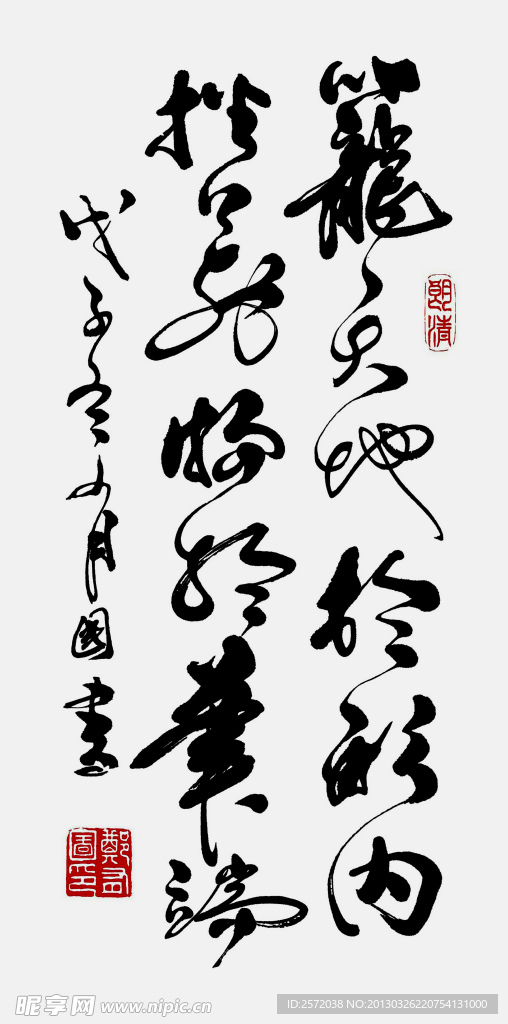 籠天地於形內
挫萬物於筆端
戊子冬有國書
朗清
鄭有國印
昵享网 www.nipic.cn
ID:2572038 NO:20130326220754131000